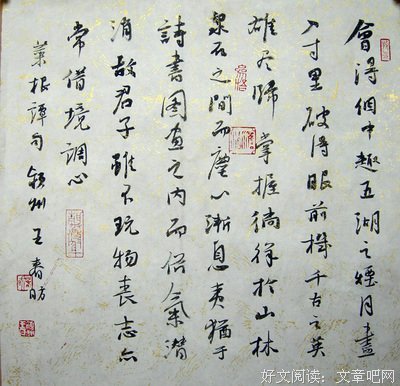 會得個中趣五湖之煙月盡
入寸里破得眼前機千古之英
雄尽歸掌握徜徉於山林
泉石之間而塵心漸息夷猶于
詩書圖畫之内而俗氣潛
消故君子雖不玩物喪志亦
常借境調心
菜根譚句 王春
好文阅读：文章吧网